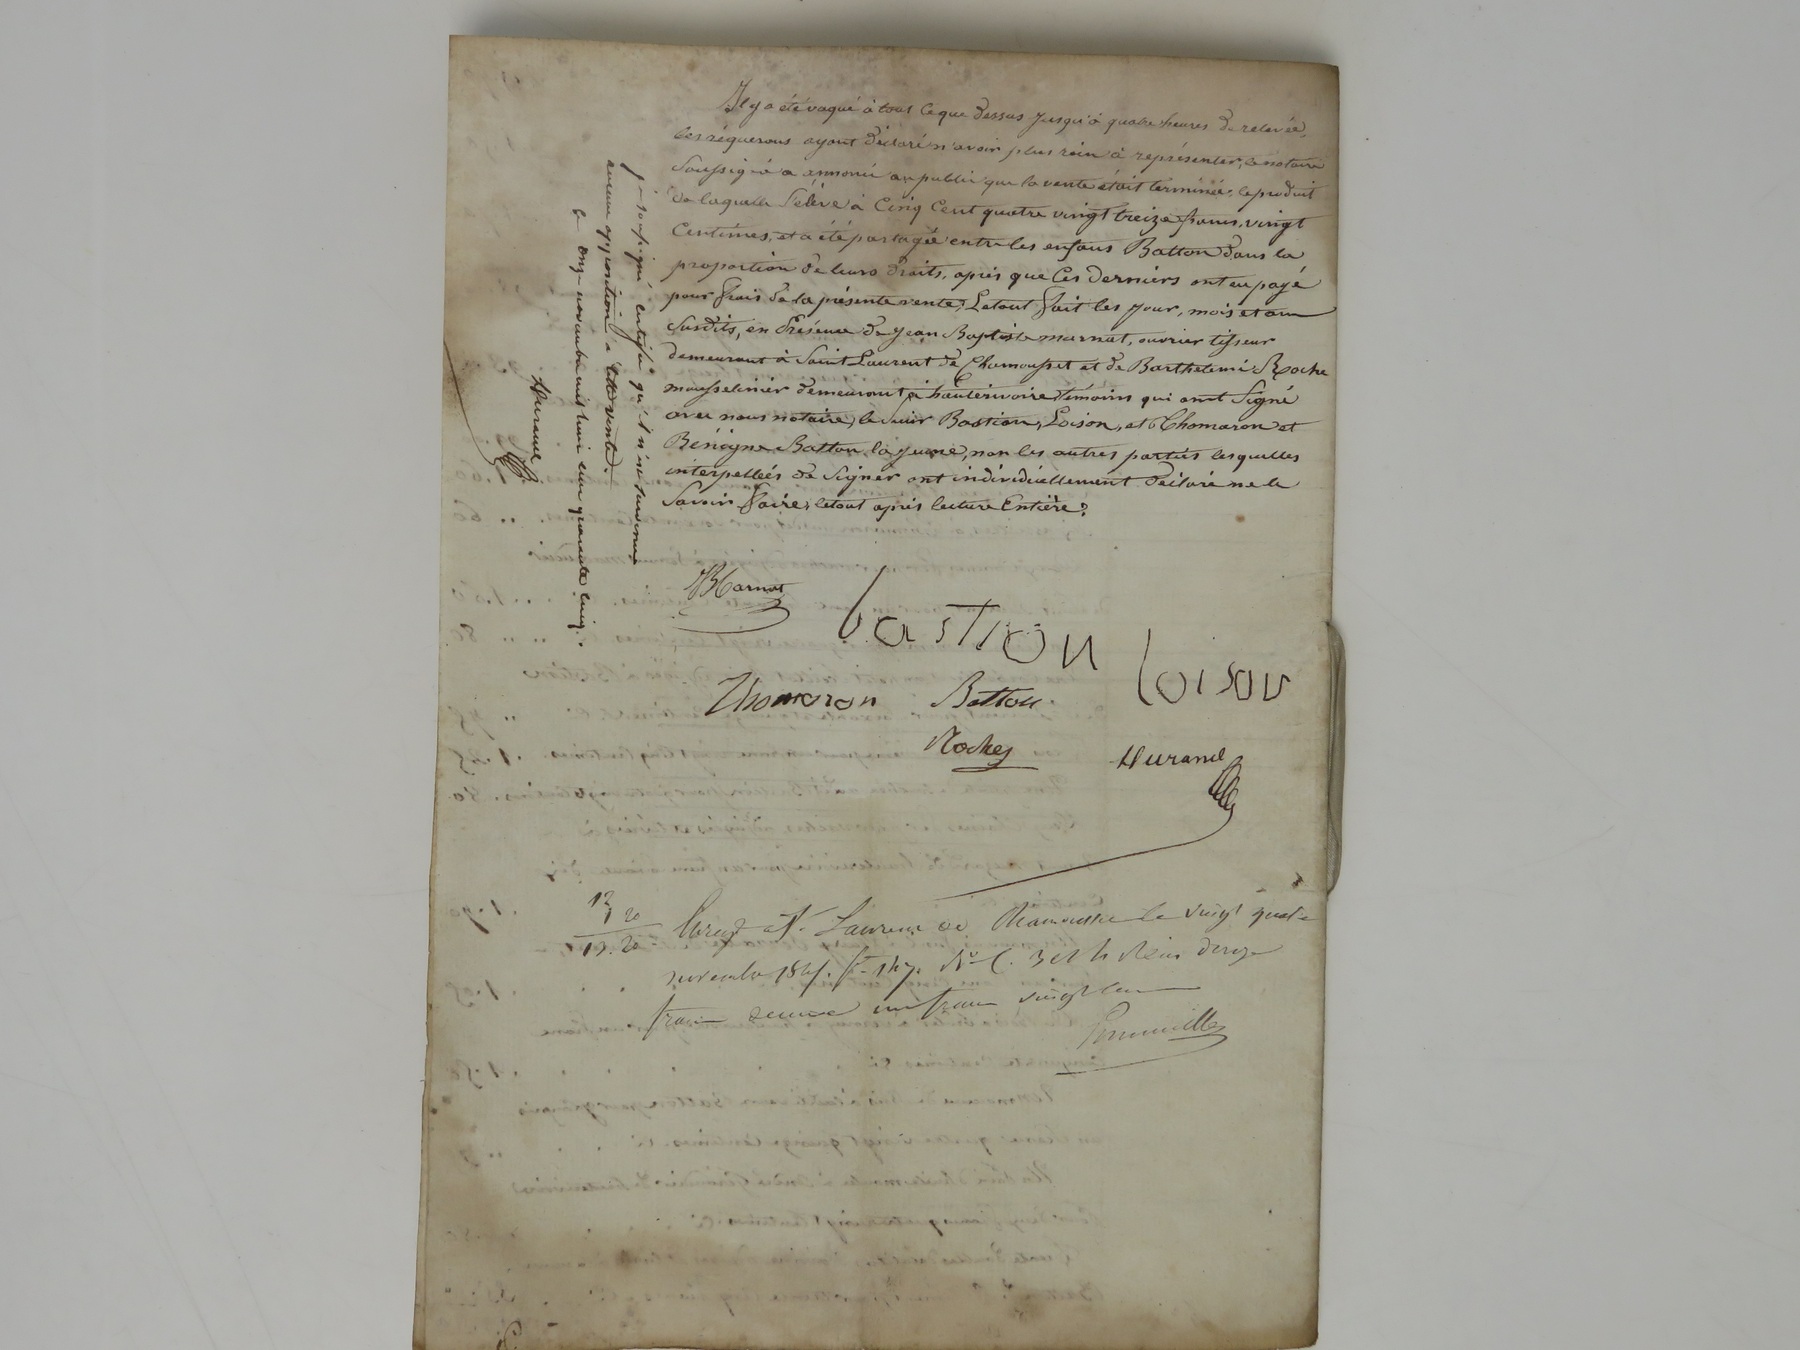 Il y a été vaqué à tout ce que dessus jusqu'à quatre heures de relevée,
les réquerans ayant déclaré n'avoir plus rien à représenter, le notaire
soussigné a annoncé au public que la vente était terminée, le produit
de laquelle s'élève à cinq cent quatre vingt treize francs, vingt
centimes, et a été partagée entre les enfans Batton dans la
proportion de leurs droits, après que ces derniers ont eu payé
pour frais de la présente vente; Le tout fait les jour, mois et an
susdits, en présence de Jean Baptiste marnat, ouvrier tisseur
demeurant à Saint Laurent de Chamousset et de Barthelemi Roche
mousselinier demeurant à hauterivoire, témoins qui ont signé
avec nous notaire, le sieur Bastion, Loison, et Thomaron et
Bénigne Batton la jeune, non les autres parties lesquelles
interpellées de signer ont individuellement déclaré ne le
savoir faire, le tout après lecture Entière.
je soussigné certifie qu'il n'est survenu
aucune opposition à cette vente.
ce onze novembre mil huit cent quarante cinq.
Durand
JB Marnat
bastion
loison
Thomaron Batton
Roche
Durand
St Laurent de Chamousset le vingt quatre
novembre
franc vingt